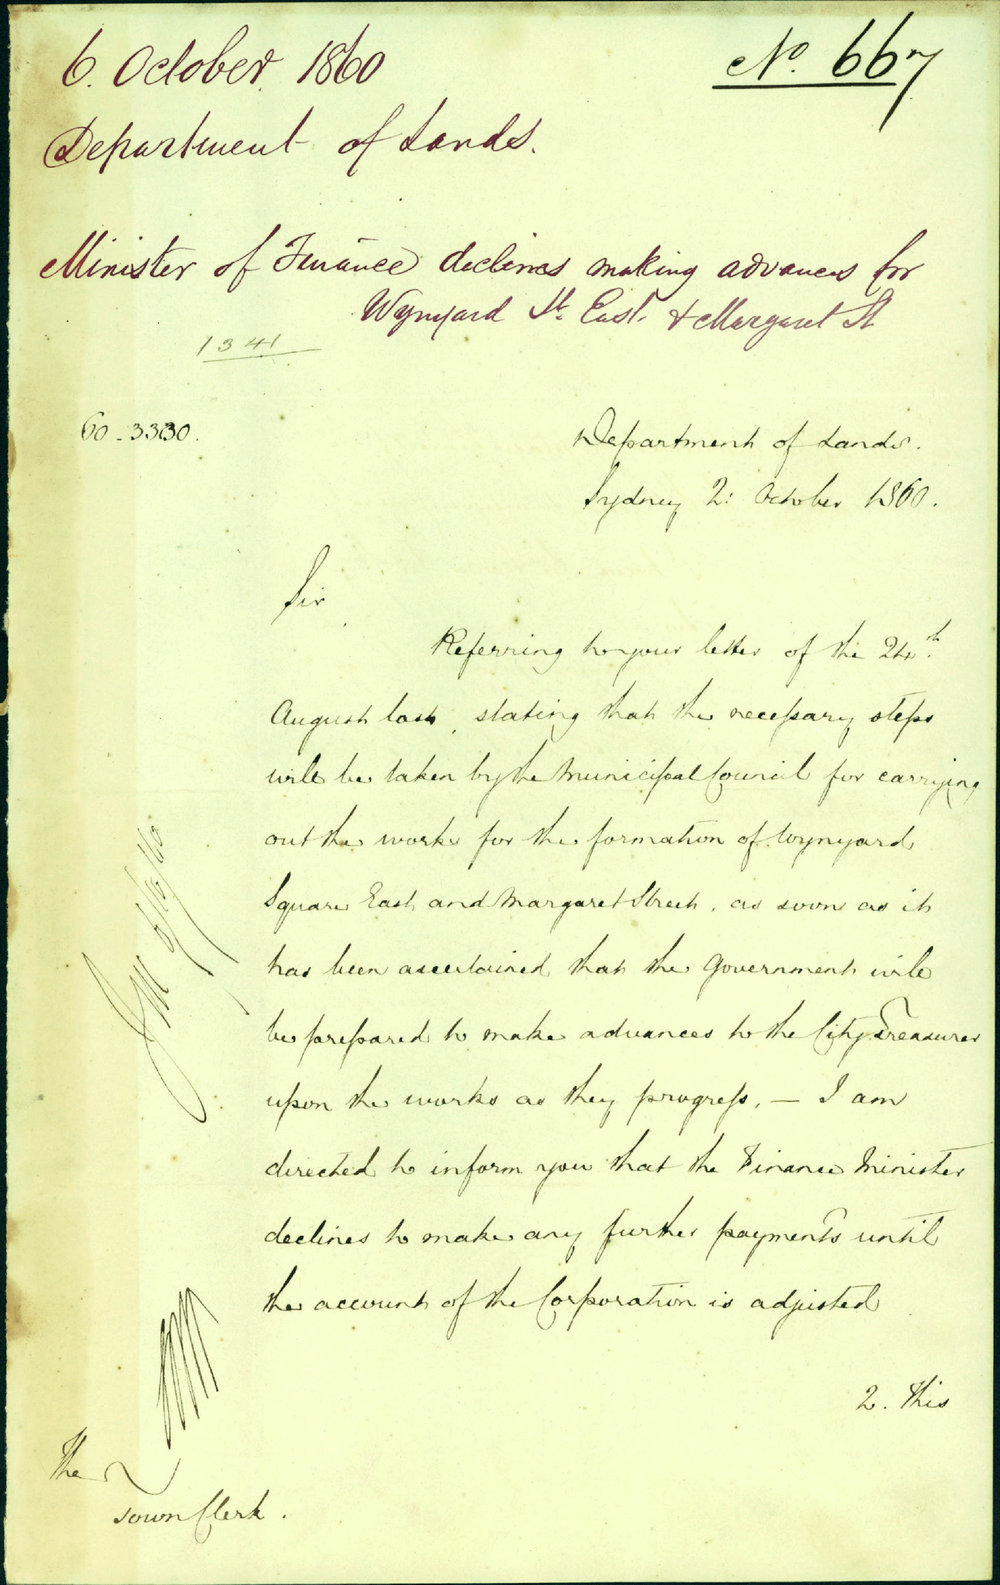 6. October 1860
No. 667
Department of Lands.
Minister of Finance declines making advances for
Wynyard St. East. & Margaret St
1341
60-3330.
Department of Lands.
Sydney 2: October 1860.
Sir
Referring to your letter of the 24th.
August last, stating that the necessary steps
will be taken by the Municipal Council for carrying
out the works for the formation of Wynyard
Square East and Margaret Street, as soon as it
has been ascertained that the Government will
be prepared to make advances to the City Treasurer
upon the works as they progress, — I am
directed to inform you that the Finance Minister
declines to make any further payments until
the account of the Corporation is adjusted
2. This
The
Town Clerk.